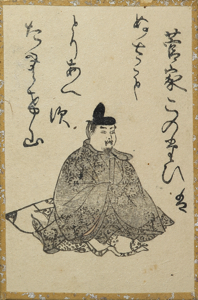 菅家 このたひ
は
ぬさも
とりあへ
す
たむけ山